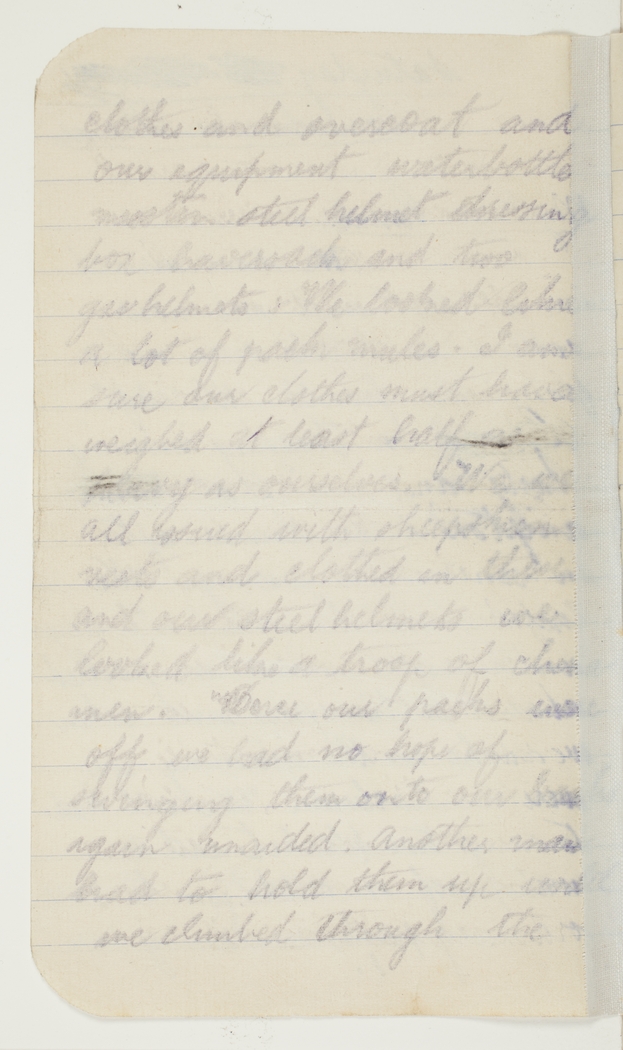 clothes and overcoat and
our equipment waterbottle
steel helmet dressing
box haversack and two
gashelmets. We looked like
a lot of pack mules. I am
sure our clothes must have
weighed at least half as
heavy as ourselves. We we
all issued with sheepskin
vests and clothed in these
and our steel helmets we
looked like a troop of
men. Once our packs were
off we had no hope of
swinging them onto our
again unaided. another man
had to hold them up
we climbed through the